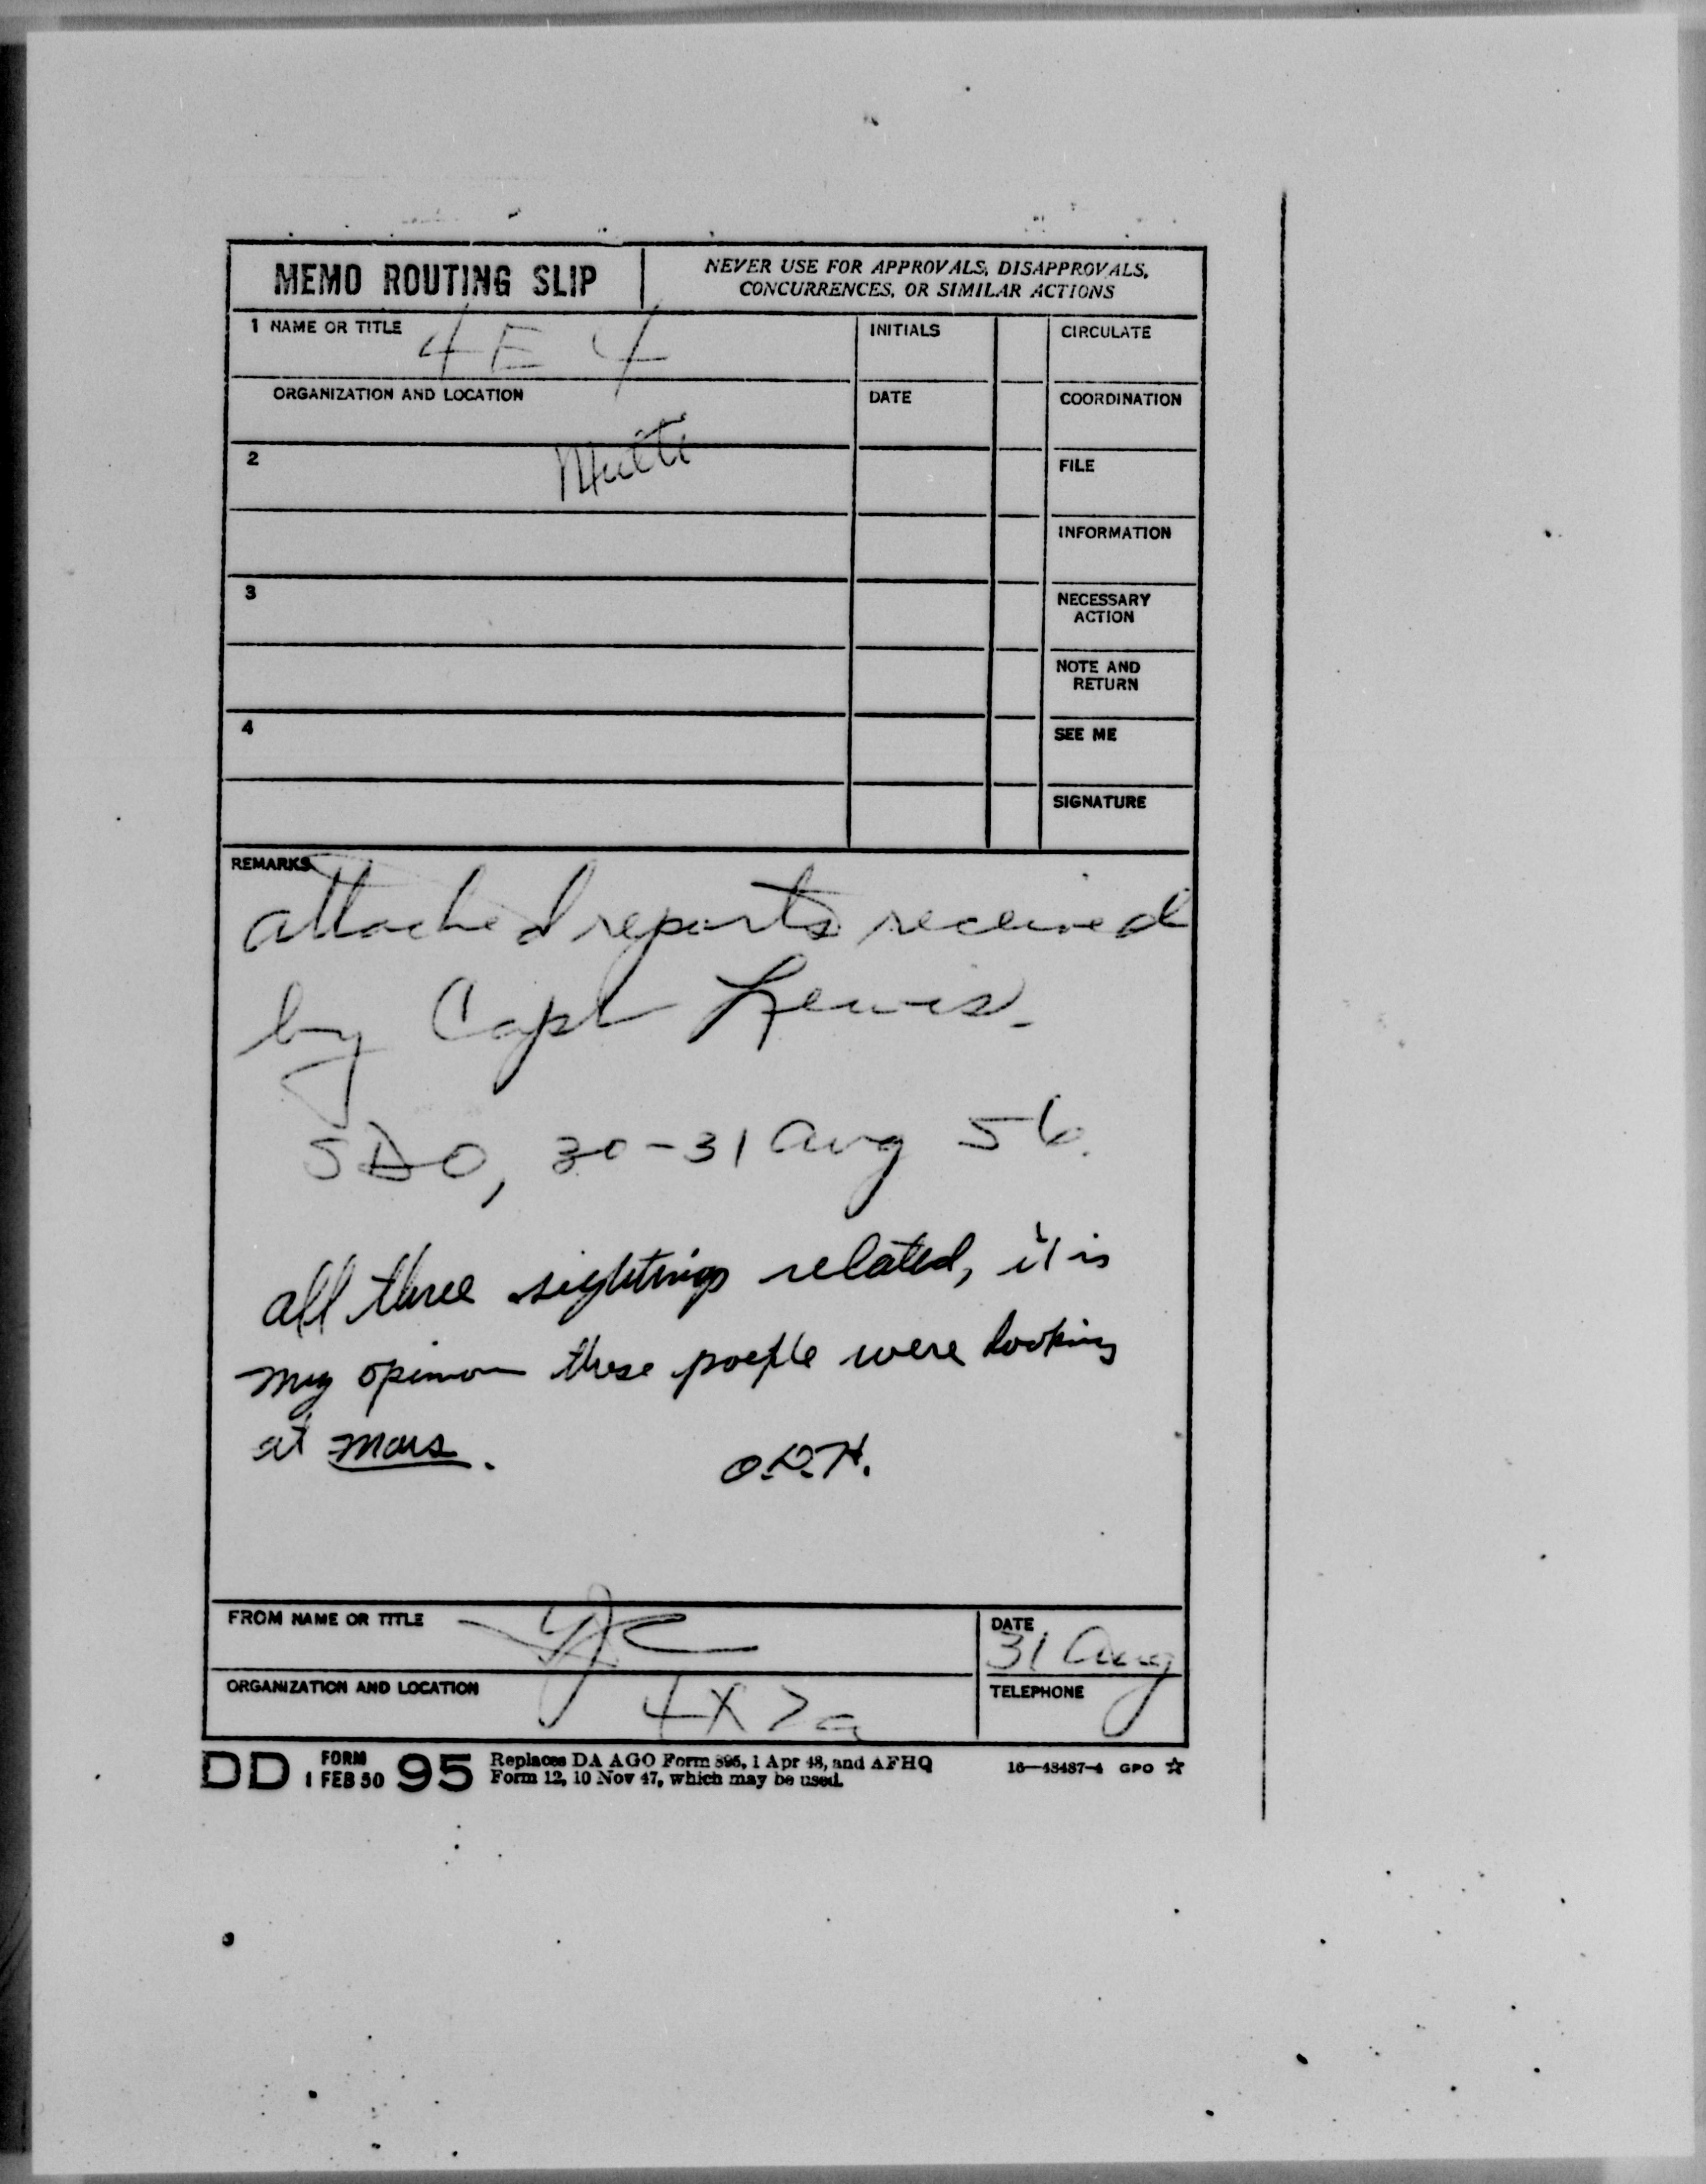 MEMO ROUTING SLIP
NEVER USE FOR APPROVALS, DISAPPROVALS,
CONCURRENCES, OR SIMILAR ACTIONS
1 NAME OR TITLE 4E4
INITIALS
CIRCULATE
ORGANIZATION AND LOCATION
DATE
COORDINATION
2
FILE
INFORMATION
3
NECESSARY
ACTION
NOTE AND
RETURN
4
SEE ME
SIGNATURE
REMARKS
attached reports received
by Capt Lewis.
SDO, 30-31 Aug 56.
all three sightings related, it is
my opinion these poeple were looking
at Mars.
O.D.H.
FROM NAME OR TITLE
DATE
31 Aug
ORGANIZATION AND LOCATION
TELEPHONE
DD FORM 1 FEB 50 95 Replaces DA AGO Form 895, 1 Apr 48, and AFHQ
Form 12, 10 Nov 47, which may be used.
16—48487-4 GPO ☆